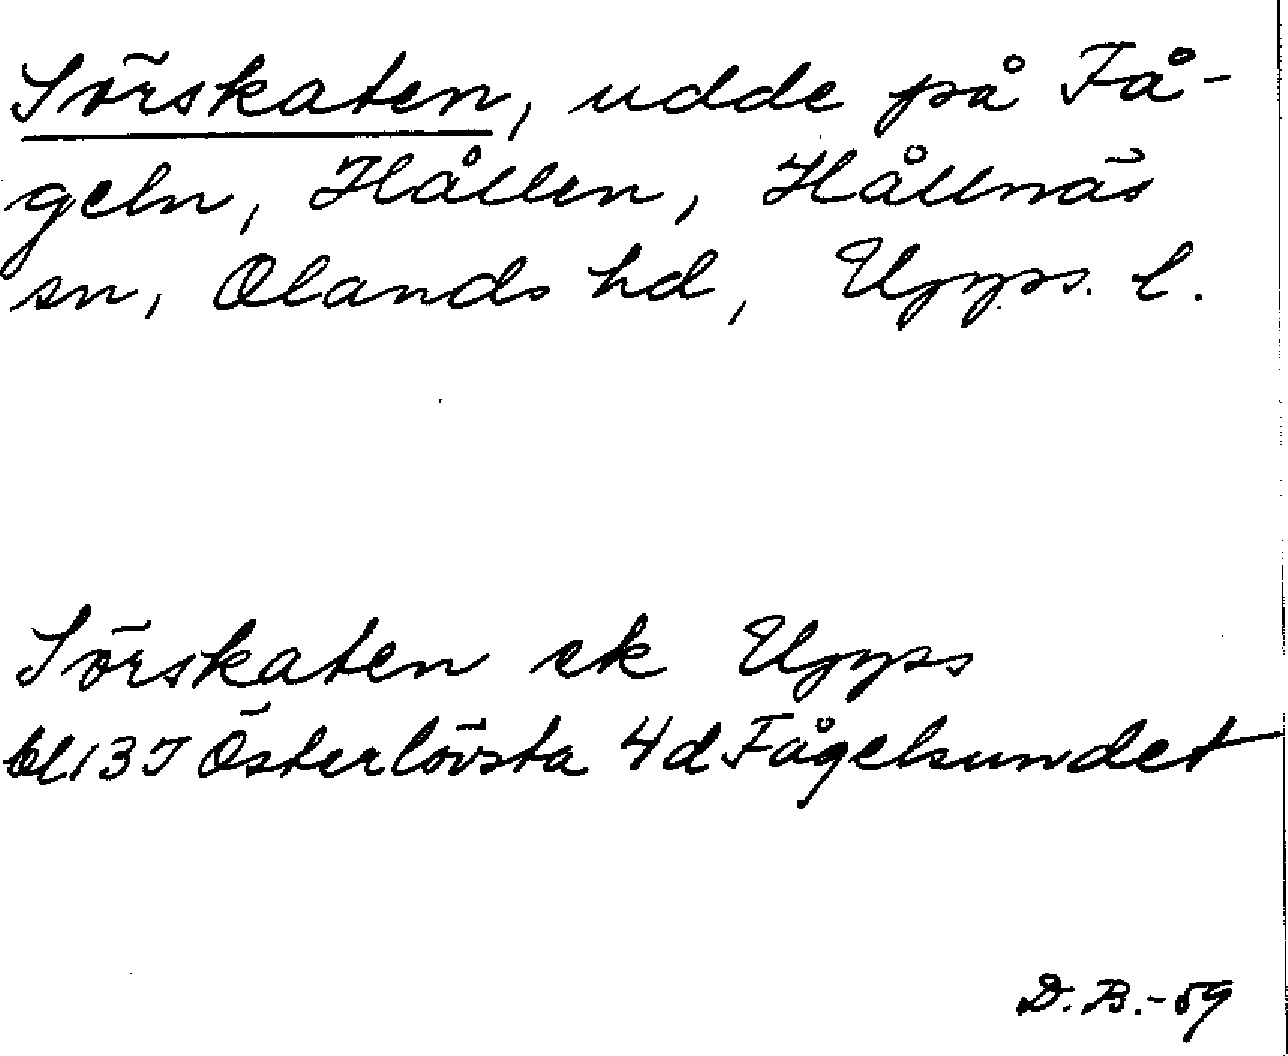 Sörskaten, udde på Få-
geln, Hållen, Hållnäs
sn, Olands hd, Upps. l.
Sörskaten ek Upps
bl 13 I Österlövsta 4d Fågelsundet
D. B. - 59